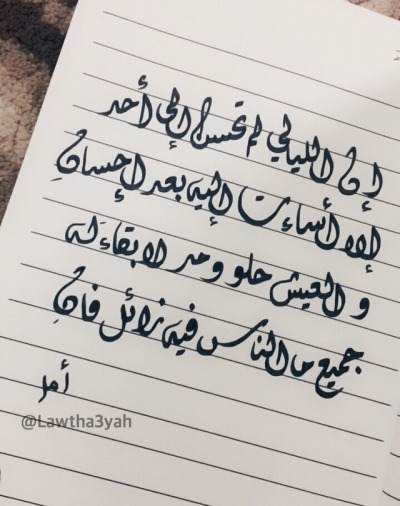 إن الليالي لم تحسن إلى أحد
إلا أساءت إليه بعد إحسانِ
و العيش حلو و مر لا بقاءَ له
جميع ما الناس فيه زائل فانِ
أمل
@Lawtha3yah